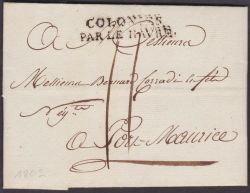 COLONIES
PAR LE HAVRE.
A Messieurs
Messieurs Bernard Corradi & fils
Neg.ts
A Port-Maurice
1802